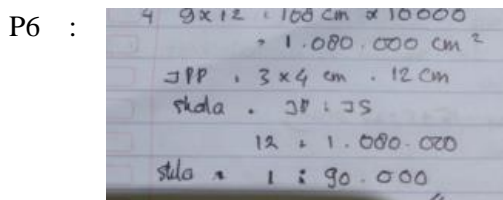 P6 :
4 9x12 : 108 cm x 10000
= 1.080.000 cm²
JPP : 3 x 4 cm . 12 cm
skala . JP : JS
12 : 1.080.000
skla = 1 : 90.000